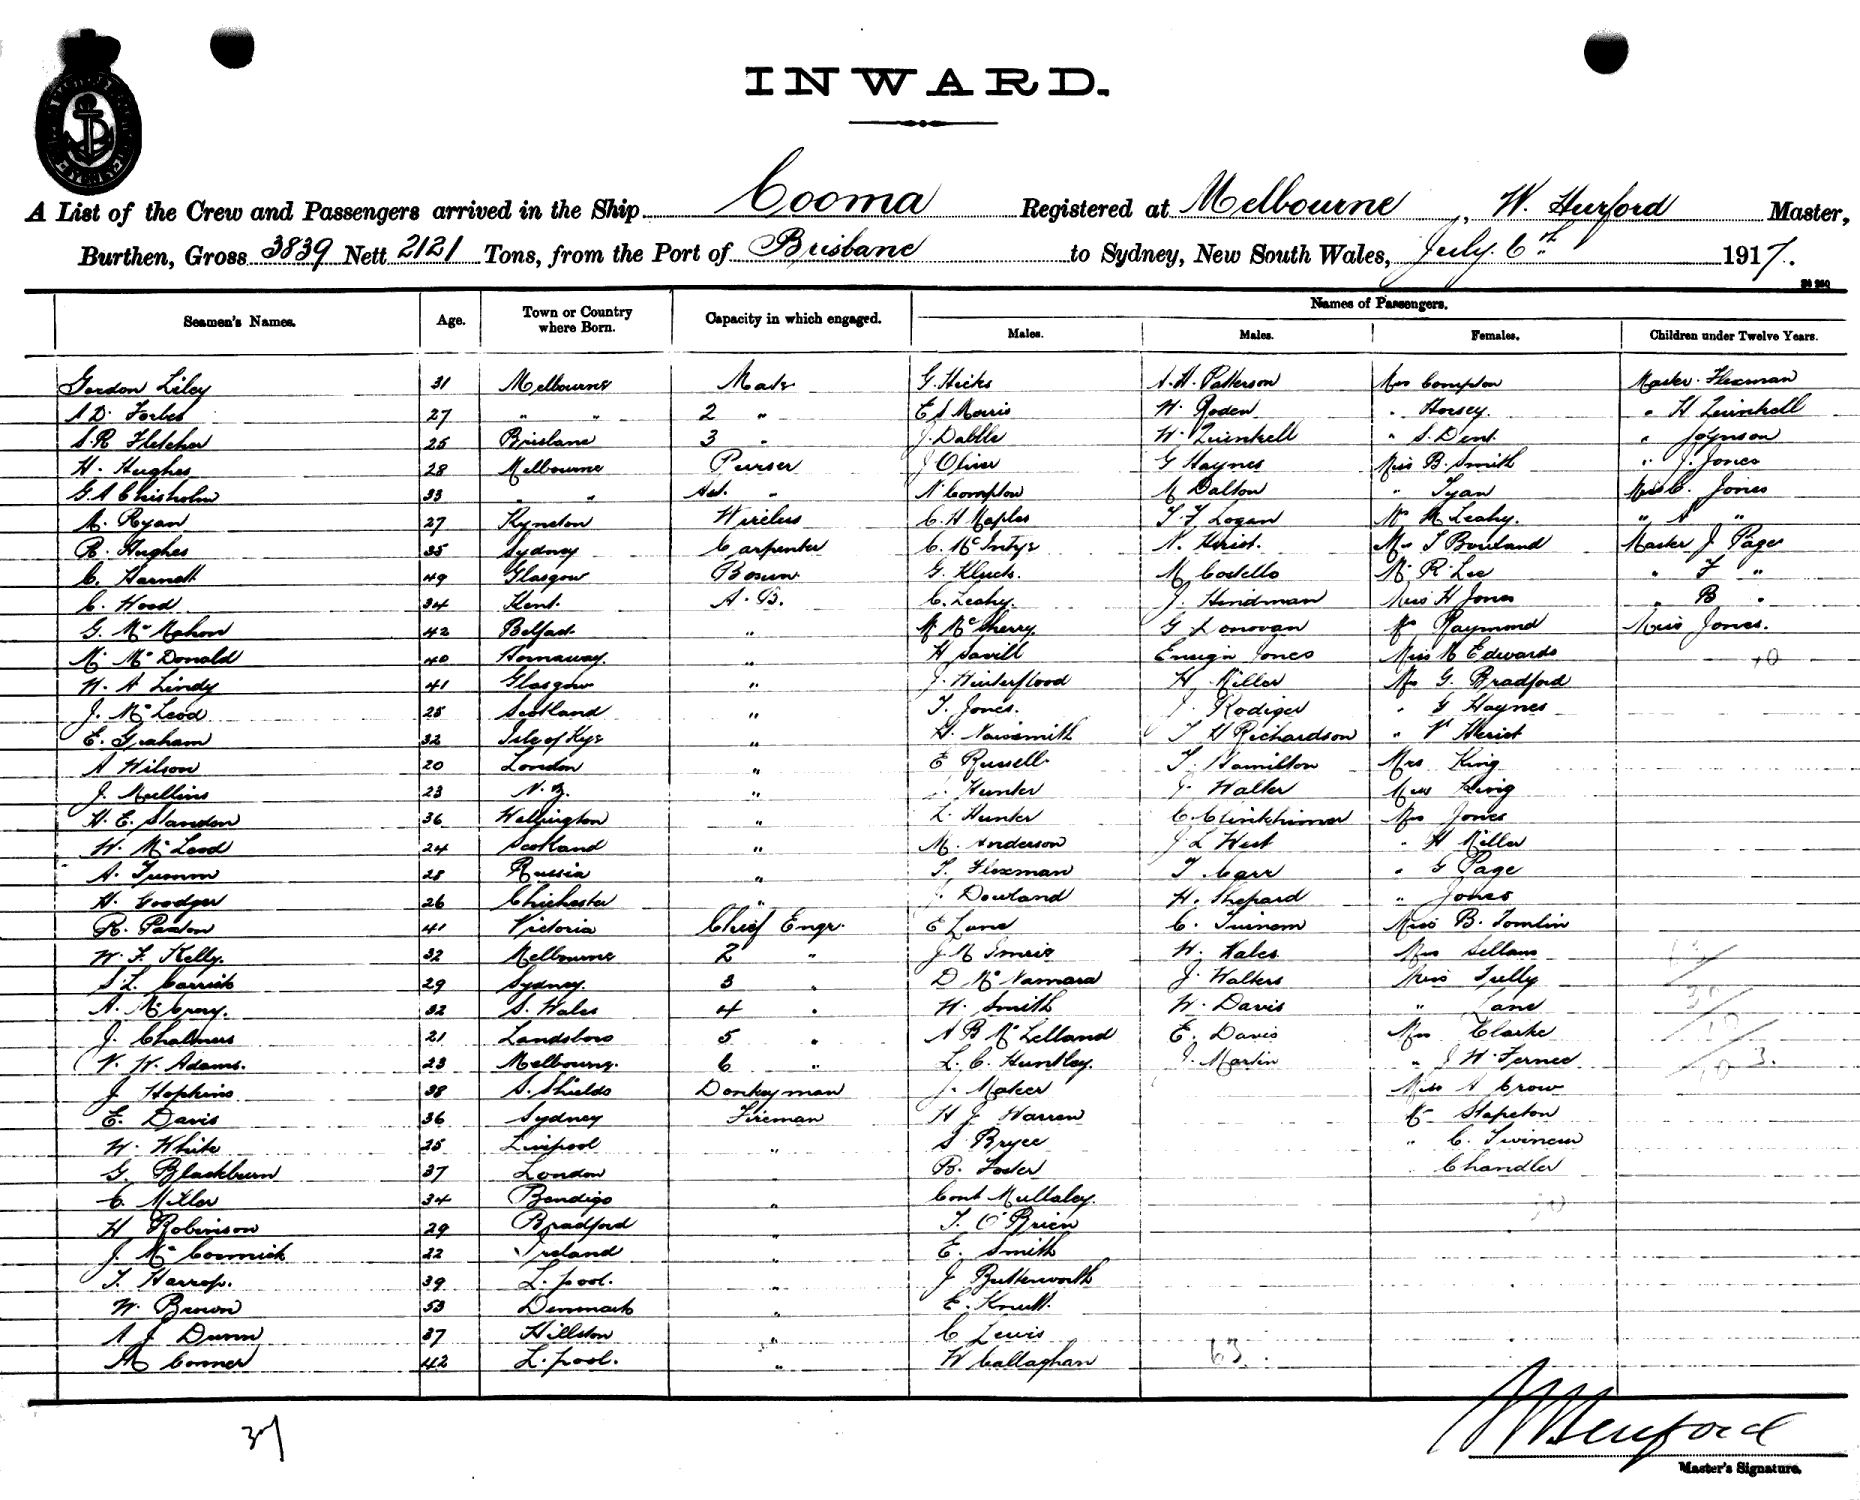 INWARD.
A List of the Crew and Passengers arrived in the Ship Cooma Registered at Melbourne, W. Hurford Master,
Burthen, Gross 3839 Nett 2121 Tons, from the Port of Brisbane to Sydney, New South Wales, July 6th 1917.
Names of Passengers.
Seamen's Names. Age. Town or Country where Born. Capacity in which engaged. Males. Males. Females. Children under Twelve Years.
Gordon Liley 31 Melbourne Mate G. Hicks A. H. Patterson Mrs Compton Master Flexman
A. D. Forbes 27 " " 2 " E S Morris W. Roden " Horsey. " H
S. R. Fletcher 25 Brisbane 3 " J. W. " S. Dent. " Joynson
H. Hughes 28 Melbourne Purser J Oliver G Haynes Miss B. Smith " J. Jones
G. A Chisholm 33 " " Ast. " N Compton M Dalton " Miss C. Jones
M. Ryan 27 Kyneton Wireless C. H Maples T. F Logan M Leahy. " A "
R. Hughes 35 Sydney Carpenter C. McIntye N. Heriot. Master J Page
C. Harnett 49 Glasgow Bosun G. M Costello R. Lee " F "
C. Wood 34 Kent. A. B. C. Leahy. J. Hindman Miss H Jones " B "
G. McMahon 42 Belfast " McSherry. G Donovan Raymond Miss Jones.
M. McDonald 40 " H Savill Ensign Jones Miss M Edwards
W. A Lindy 41 Glasgow " J. Winterflood H Miller Mrs G. Bradford
J. McLeod 25 Scotland " T. Jones. J. Rodiger " G Haynes
E. Graham 32 Isle of Kye " H. Naismith T H Richardson " V Heriot
A Wilson 20 London " E Russell. T. Hamilton Mrs King
J. Mullins 23 N. Z. " Hunter J Walker Miss King
H. E. Standen 36 Wellington " L. Hunter C. Mrs Jones
W. McLeod 24 Scotland " M. Anderson J L West " H Miller
A. 28 Russia " T. Flexman T. Carr " G Page
H. Goodger 26 Chichester " J. Dowland H. Shepard " Jones
R. Paxton 41 Victoria Chief Engr. E Lane C. Miss B. Tomlin
W. F. Kelly. 32 Melbourne 2 " J. M Imrie W. Hales Mrs Sellars
S L. Carrick 29 Sydney. 3 " D McNamara J. Walkers Miss Tully
A. McCrory. 32 S. Wales 4 " W. Smith W. Davis " Lane
J. Chalmers 21 Landsboro 5 " A B McLelland E. Davis Mrs Clarke
V. W. Adams. 23 Melbourne. 6 " L. C. Huntley. J. Martin " J W. Fernee 3.
J Hopkins 38 S. Shields Donkeyman J. Maher Miss A Crow
E. Davis 36 Sydney Fireman H J Warren Stapleton
W. White 25 Liverpool " S Bryce " C. Twinem
G. Blackburn 37 London " B. Foster Chandler
C. Miller 34 Bendigo " Const Mullaley.
H Robinson 29 Bradford " T. O'Brien
J. McCormick 22 Ireland " E. Smith
T. Harrop. 39 L. pool. " J Butterworth
W. Brown 53 Denmark " E. Knutt.
A J Dunn 37 Hillston " C Lewis
M Connor 42 L. pool. " W Callaghan 63.
37
W Hurford
Master's Signature.